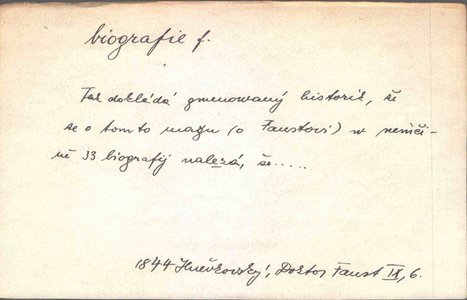 biografie f.
Tak dokládá gmenowaný historik, še
se o tomto magu (o Faustowi) w němči-
ně 33 biografij nalezá, še.....
1844 Hněvkovský, Doktor Faust IX, 6.